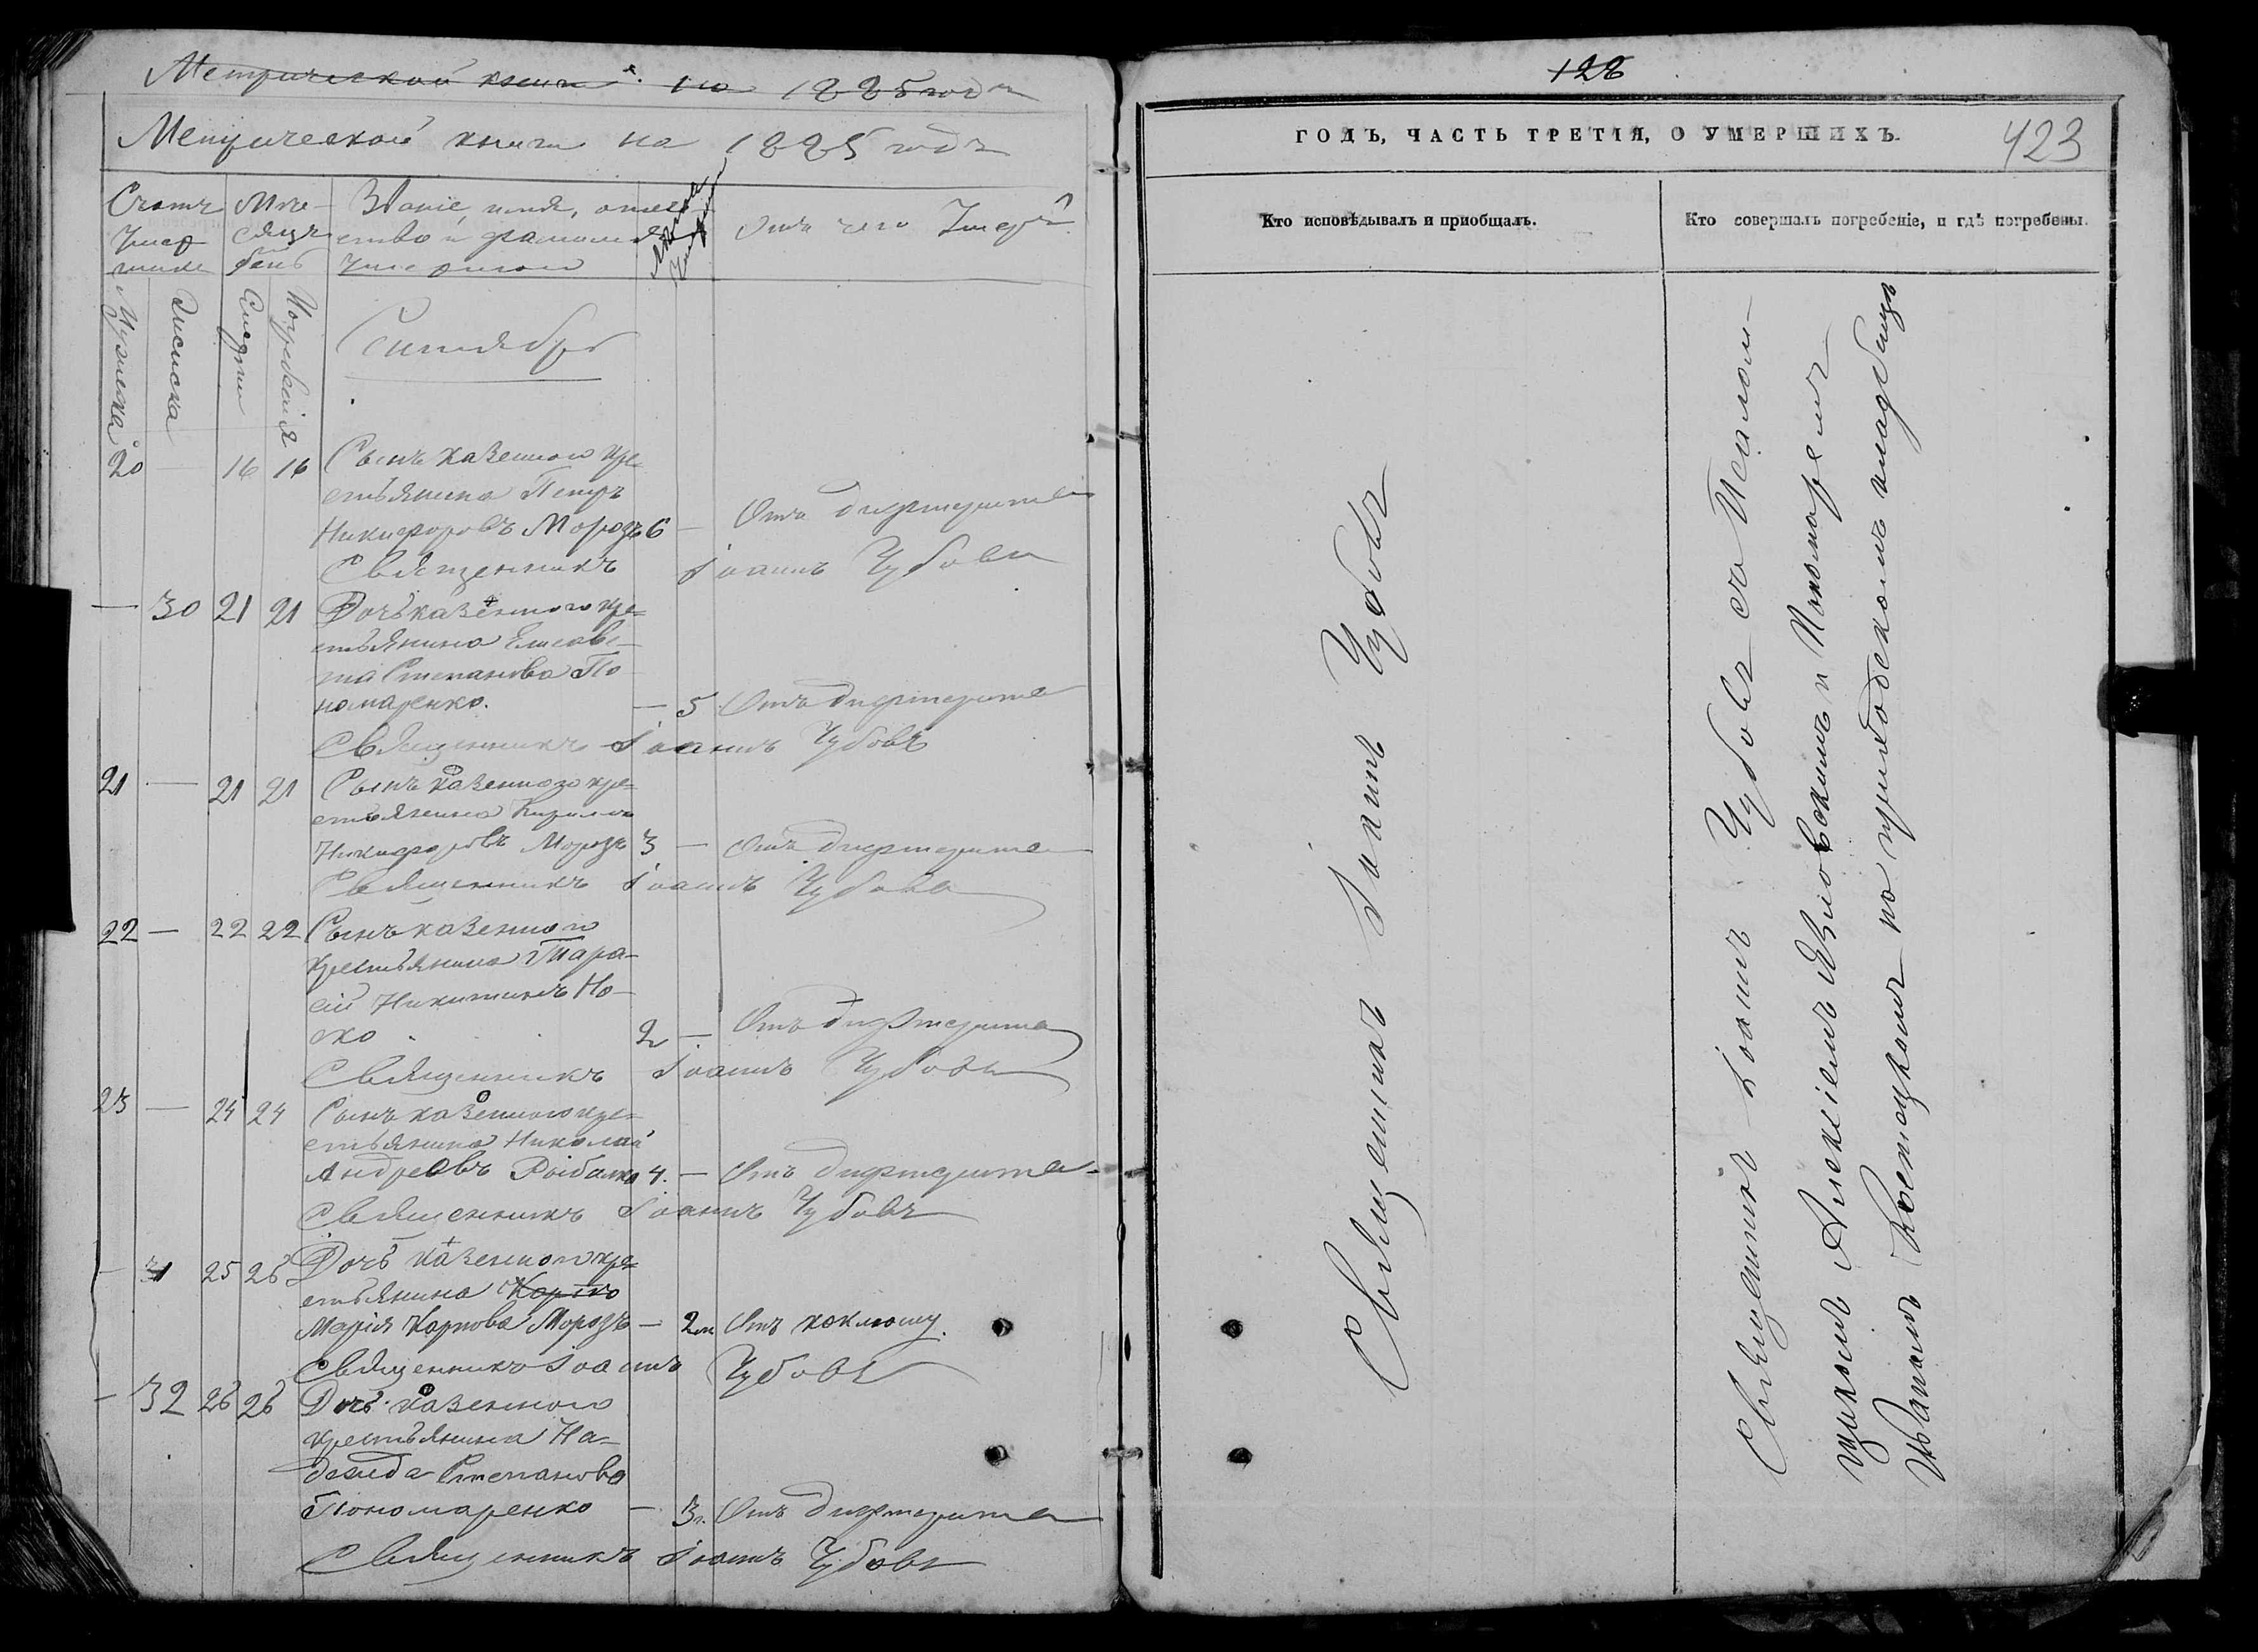 Метрической книги на 1885 годъ
Метрической книги на 1885 годъ
Счетъ
умер
шихъ
Мѣ-
сяцъ
день
Званіе, имя, отче-
ство и фамилія
умершаго
Лѣта
умершаго
Отъ чего умеръ
Мужеска
Женска
Смерти
Погребенія
Сентябрь
20 — 16 16 Сынъ казеннаго кре-
стьянина Петръ
Никифоровъ Морозъ 6 — Отъ дифтерита
Священникъ Іоаннъ Чубовъ
— 30 21 21 Дочь казеннаго кре-
стьянина Елисаве-
та Степанова По
номаренко. — 5 Отъ дифтерита
Священникъ Іоаннъ Чубовъ
21 — 21 21 Сынъ казеннаго кре-
стьянина Кириллъ
Никифоровъ Морозъ 3 — Отъ дифтерита
Священникъ Іоаннъ Чубовъ
22 — 22 22 Сынъ казеннаго
крестьянина Тара-
сій Никитинъ Но-
жко 2 — Отъ дифтерита
Священникъ Іоаннъ Чубовъ
23 — 24 24 Сынъ казеннаго кре-
стьянина Николай
Андреевъ Рыбалка 4. — Отъ дифтерита
Священникъ Іоаннъ Чубовъ
— 31 25 26 Дочь казеннаго кре-
стьянина
Марія Карпова Морозъ — 2 м Отъ коклюшу.
Священникъ Іоаннъ Чубовъ
— 32 26 26 Дочь казеннаго
крестьянина На-
дежда Степанова
Пономаренко — 3 г. Отъ дифтерита
Священникъ Іоаннъ Чубовъ
128
ГОДЪ, ЧАСТЬ ТРЕТІЯ, О УМЕРШИХЪ.
423
Кто исповѣдывалъ и пріобщалъ.
Кто совершалъ погребеніе, и гдѣ погребены.
Священникъ Іоаннъ Чубовъ
Священникъ Іоаннъ Чубовъ съ Псалом-
щикомъ Алексіемъ Язловскимъ и Пономаремъ
Иваномъ Костецкимъ на приходскомъ кладбищѣ